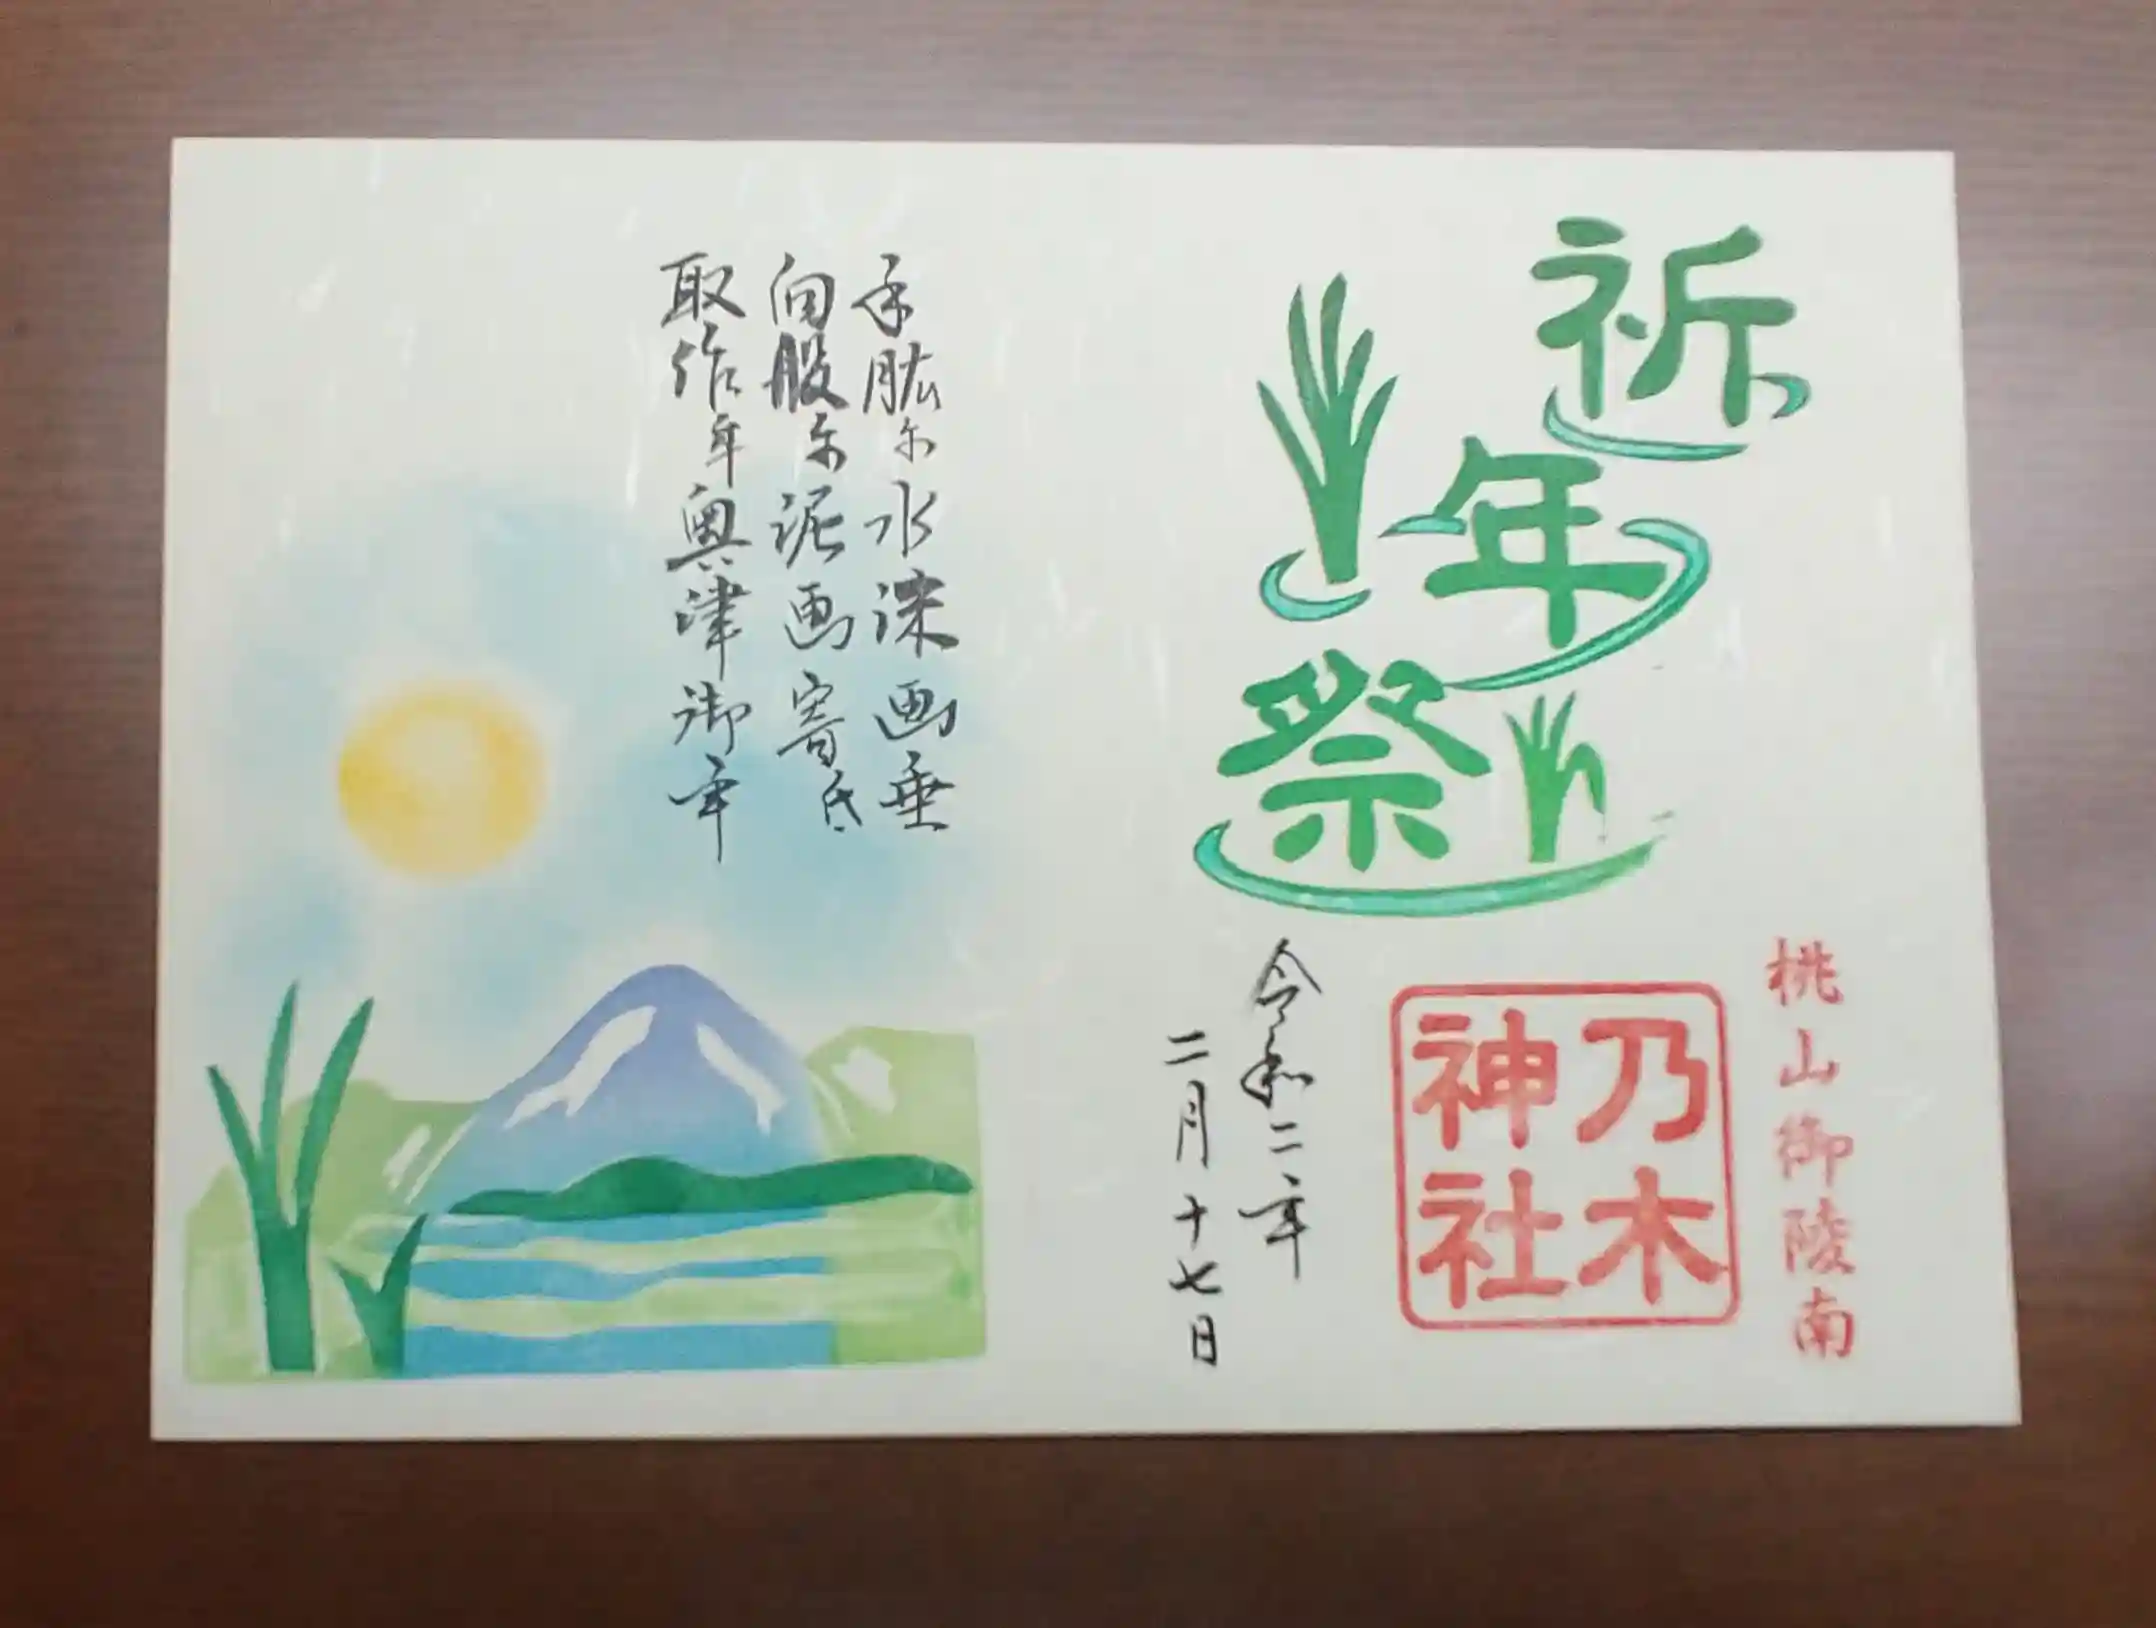 祈年祭
桃山御陵南
乃木
神社
令和二年
二月十七日
手肱尓水沫画垂
向股尓泥画寄氐
取作牟奥津御年